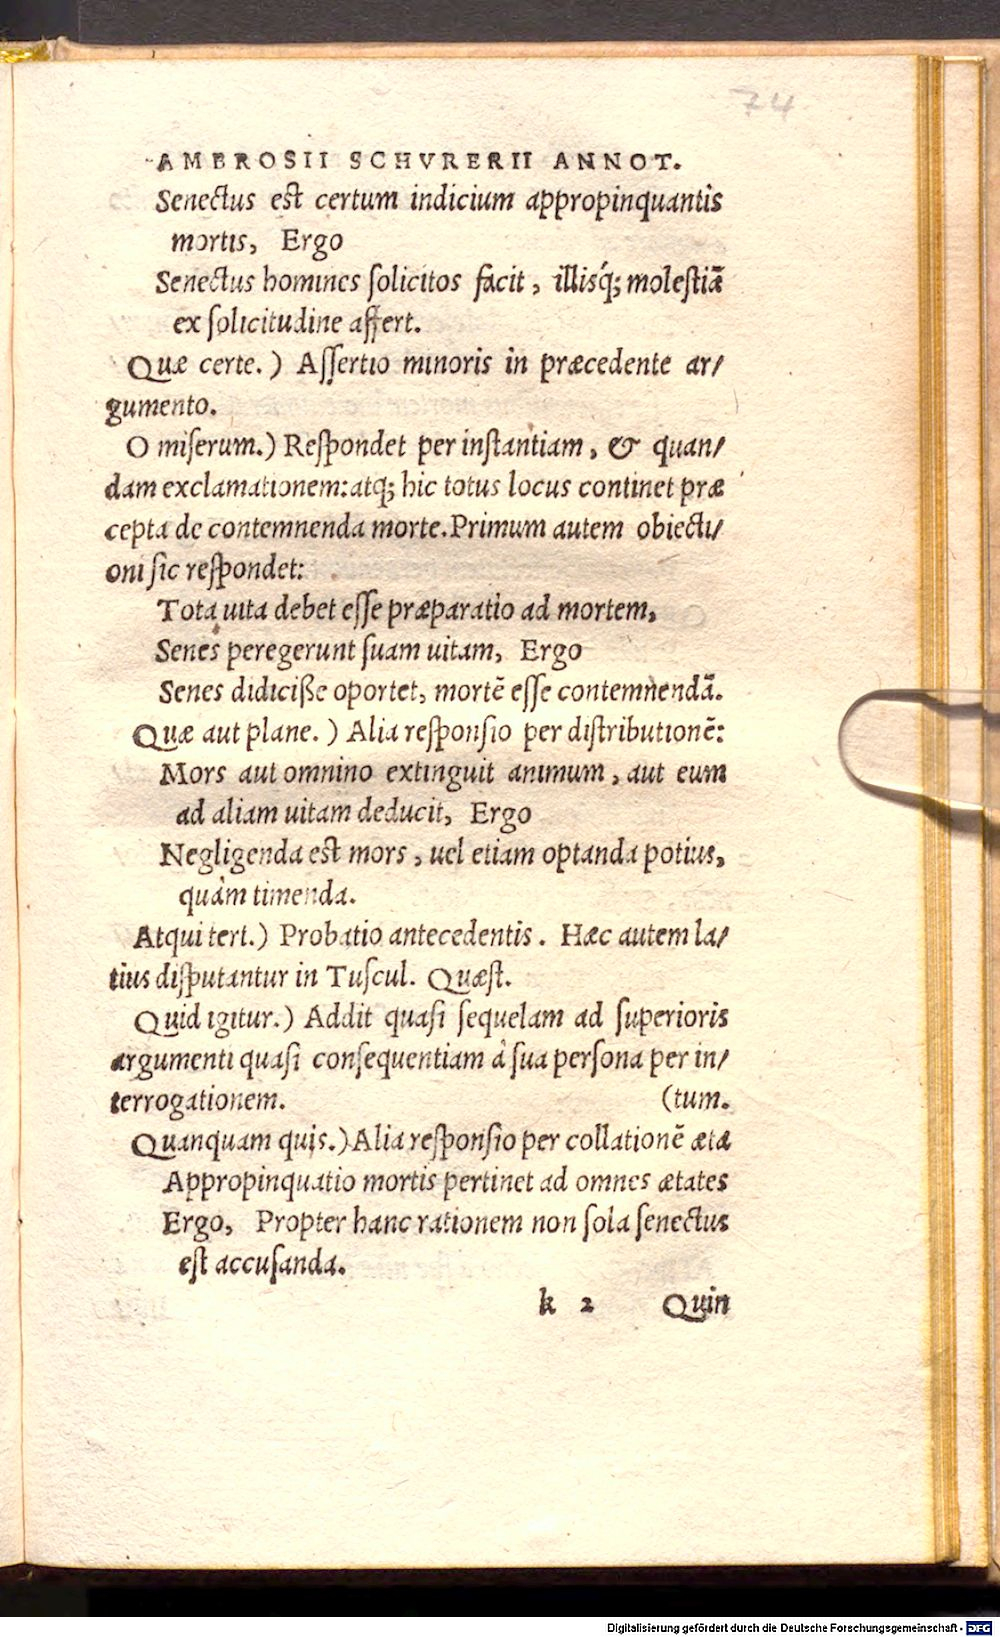 74
AMBROSII SCHVRERII ANNOT.
Senectus est certum indicium appropinquantis
mortis, Ergo
Senectus homines solicitos facit, illisq́; molestiā
ex solicitudine affert.
Quæ certe.) Assertio minoris in præcedente ar/
gumento.
O miserum.) Respondet per instantiam, & quan/
dam exclamationem: atq; hic totus locus continet præ
cepta de contemnenda morte. Primum autem obiecti/
oni sic respondet:
Tota uita debet esse præparatio ad mortem,
Senes peregerunt suam uitam, Ergo
Senes didicisse oportet, mortē esse contemnendā.
Quæ aut plane.) Alia responsio per distributionē:
Mors aut omnino extinguit animum, aut eum
ad aliam uitam deducit, Ergo
Negligenda est mors, uel etiam optanda potius,
quàm timenda.
Atqui tert.) Probatio antecedentis. Hæc autem la/
tius disputantur in Tuscul. Quæst.
Quid igitur.) Addit quasi sequelam ad superioris
argumenti quasi consequentiam à sua persona per in/
terrogationem. (tum.
Quanquam quis.) Alia responsio per collationē æta
Appropinquatio mortis pertinet ad omnes ætates
Ergo, Propter hanc rationem non sola senectus
est accusanda.
k 2 Quin
Digitalisierung gefördert durch die Deutsche Forschungsgemeinschaft - DFG